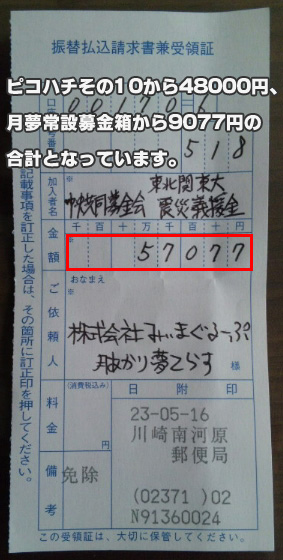 振替払込請求書兼受領証
ピコハチその10から48000円、
月夢常設募金箱から9077円の
合計となっています。
00170=6
518
加入者名
東北関東大
中央共同募金会 震災義援金
金額
千百十万千百十円
57077
おなまえ
ご依頼人
株式会社みぃまぐるーぷ
月あかり夢てらす
様
(消費税込み)
料金
円
備考
免除
日附印
23-05-16
川崎南河原
郵便局
(02371 )02
N91360024
記載事項を訂正した場合は、その箇所に訂正印を押してください。
この受領証は、大切に保管してください。